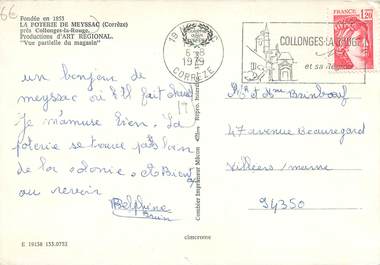 66
Fondée en 1853
LA POTERIE DE MEYSSAC (Corrèze)
près Collonges-la-Rouge.
Productions d'ART REGIONAL.
"Vue partielle du magasin"
19
6-8
1979
CORRÈZE
COLLONGES-LA-ROUGE
et sa
FRANCE
1,20
un bonjour de
meyssac ou il fait chaud
je m'amuse bien. La
poterie se trouve pas loin
de la colonie. et Bien
au revoir
Delphine
17
Mr et Mme Brimboeuf
47 avenue Beauregard
Villiers/marne
94350
Combier Imprimeur Mâcon
E 19158 155.0752
cimcrome